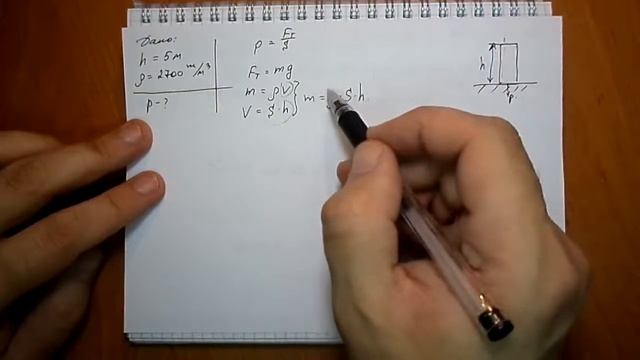 Дано:
h = 5м
ρ = 2700 м/м³
p - ?
p = Fт/S
Fт = mg
m = ρV
V = S·h
m = S·h.
h
p